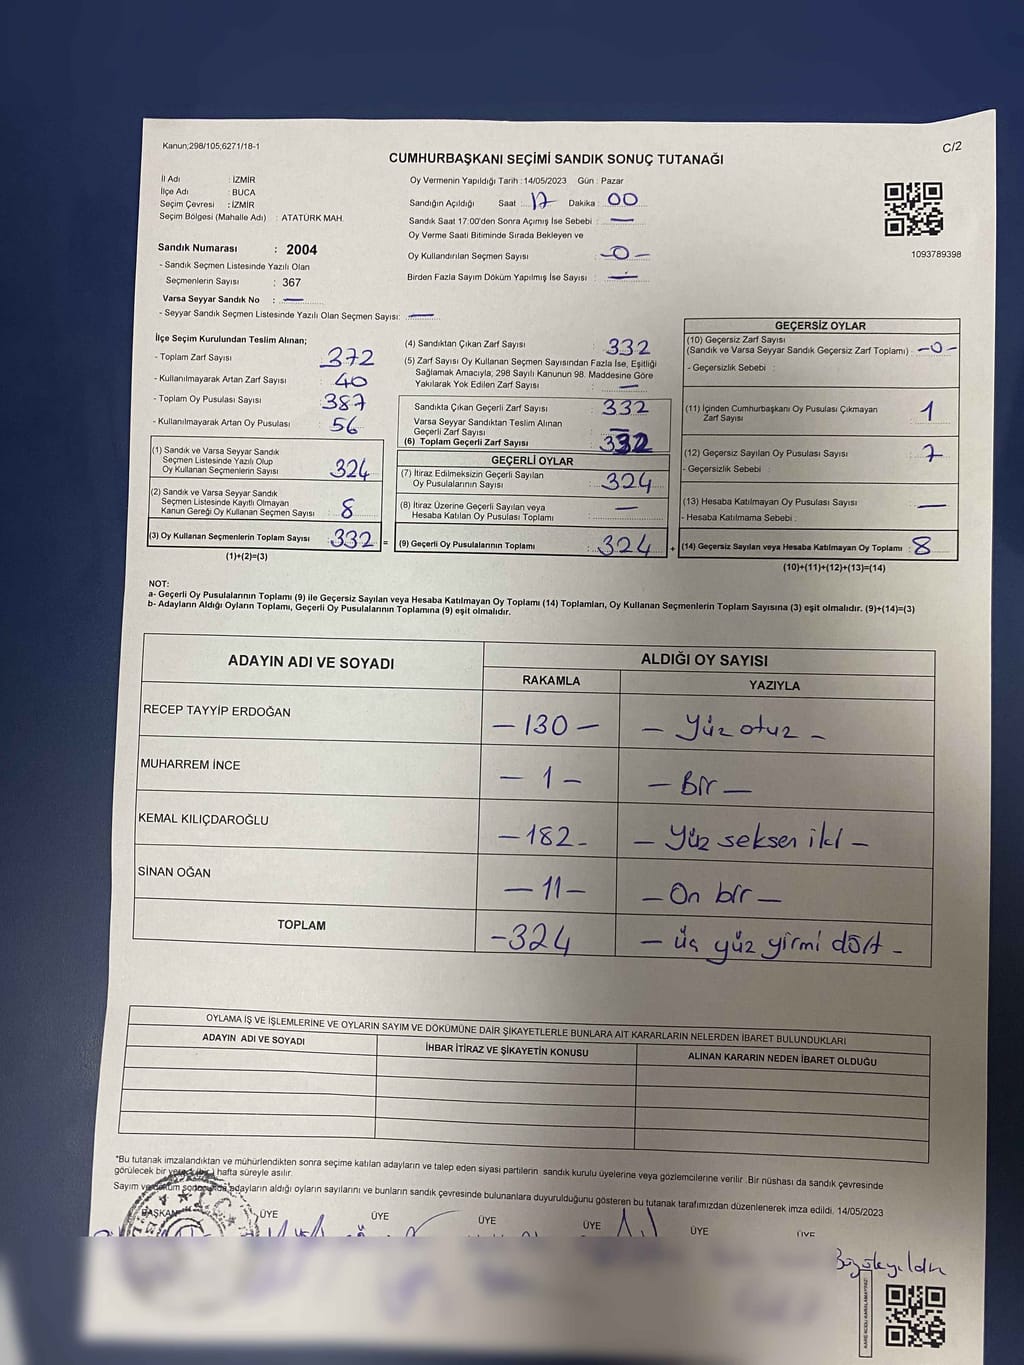 Kanun;298/105;6271/18-1
C/2
CUMHURBAŞKANI SEÇİMİ SANDIK SONUÇ TUTANAĞI
İl Adı : İZMİR
İlçe Adı : BUCA
Seçim Çevresi : İZMİR
Seçim Bölgesi (Mahalle Adı) : ATATÜRK MAH.
Sandık Numarası : 2004
- Sandık Seçmen Listesinde Yazılı Olan
Seçmenlerin Sayısı : 367
Varsa Seyyar Sandık No : —
- Seyyar Sandık Seçmen Listesinde Yazılı Olan Seçmen Sayısı: —
Oy Vermenin Yapıldığı Tarih : 14/05/2023 Gün : Pazar
Sandığın Açıldığı Saat : 17 Dakika : 00
Sandık Saat 17:00'den Sonra Açımış İse Sebebi : —
Oy Verme Saati Bitiminde Sırada Bekleyen ve
Oy Kullandırılan Seçmen Sayısı : —0—
Birden Fazla Sayım Döküm Yapılmış İse Sayısı : —
1093789398
İlçe Seçim Kurulundan Teslim Alınan;
- Toplam Zarf Sayısı : 372
- Kullanılmayarak Artan Zarf Sayısı : 40
- Toplam Oy Pusulası Sayısı : 387
- Kullanılmayarak Artan Oy Pusulası : 56
(1) Sandık ve Varsa Seyyar Sandık
Seçmen Listesinde Yazılı Olup
Oy Kullanan Seçmenlerin Sayısı : 324
(2) Sandık ve Varsa Seyyar Sandık
Seçmen Listesinde Kayıtlı Olmayan
Kanun Gereği Oy Kullanan Seçmen Sayısı : 8
(3) Oy Kullanan Seçmenlerin Toplam Sayısı : 332 =
(1)+(2)=(3)
(4) Sandıktan Çıkan Zarf Sayısı : 332
(5) Zarf Sayısı Oy Kullanan Seçmen Sayısından Fazla İse, Eşitliği
Sağlamak Amacıyla, 298 Sayılı Kanunun 98. Maddesine Göre
Yakılarak Yok Edilen Zarf Sayısı : —
Sandıkta Çıkan Geçerli Zarf Sayısı : 332
Varsa Seyyar Sandıktan Teslim Alınan
Geçerli Zarf Sayısı : —
(6) Toplam Geçerli Zarf Sayısı : 332
GEÇERLİ OYLAR
(7) İtiraz Edilmeksizin Geçerli Sayılan
Oy Pusulalarının Sayısı : 324
(8) İtiraz Üzerine Geçerli Sayılan veya
Hesaba Katılan Oy Pusulası Toplamı : —
(9) Geçerli Oy Pusulalarının Toplamı : 324 +
GEÇERSİZ OYLAR
(10) Geçersiz Zarf Sayısı
(Sandık ve Varsa Seyyar Sandık Geçersiz Zarf Toplamı) : —0—
- Geçersizlik Sebebi :
(11) İçinden Cumhurbaşkanı Oy Pusulası Çıkmayan
Zarf Sayısı : 1
(12) Geçersiz Sayılan Oy Pusulası Sayısı : 7
- Geçersizlik Sebebi :
(13) Hesaba Katılmayan Oy Pusulası Sayısı : —
- Hesaba Katılmama Sebebi :
(14) Geçersiz Sayılan veya Hesaba Katılmayan Oy Toplamı : 8
(10)+(11)+(12)+(13)=(14)
NOT:
a- Geçerli Oy Pusulalarının Toplamı (9) ile Geçersiz Sayılan veya Hesaba Katılmayan Oy Toplamı (14) Toplamları, Oy Kullanan Seçmenlerin Toplam Sayısına (3) eşit olmalıdır. (9)+(14)=(3)
b- Adayların Aldığı Oyların Toplamı, Geçerli Oy Pusulalarının Toplamına (9) eşit olmalıdır.
ADAYIN ADI VE SOYADI
ALDIĞI OY SAYISI
RAKAMLA YAZIYLA
RECEP TAYYİP ERDOĞAN — 130 — — Yüz otuz —
MUHARREM İNCE — 1 — — Bir —
KEMAL KILIÇDAROĞLU — 182 — — Yüz seksen iki —
SİNAN OĞAN — 11 — — On bir —
TOPLAM — 324 — üç yüz yirmi dört —
OYLAMA İŞ VE İŞLEMLERİNE VE OYLARIN SAYIM VE DÖKÜMÜNE DAİR ŞİKAYETLERLE BUNLARA AİT KARARLARIN NELERDEN İBARET BULUNDUKLARI
ADAYIN ADI VE SOYADI İHBAR İTİRAZ VE ŞİKAYETİN KONUSU ALINAN KARARIN NEDEN İBARET OLDUĞU
*Bu tutanak imzalandıktan ve mühürlendikten sonra seçime katılan adayların ve talep eden siyasi partilerin sandık kurulu üyelerine veya gözlemcilerine verilir .Bir nüshası da sandık çevresinde
görülecek bir yere (bir) hafta süreyle asılır.
Sayım ve döküm sonucunda adayların aldığı oyların sayılarını ve bunların sandık çevresinde bulunanlara duyurulduğunu gösteren bu tutanak tarafımızdan düzenlenerek imza edildi. 14/05/2023
BAŞKAN ÜYE ÜYE ÜYE ÜYE ÜYE ÜYE